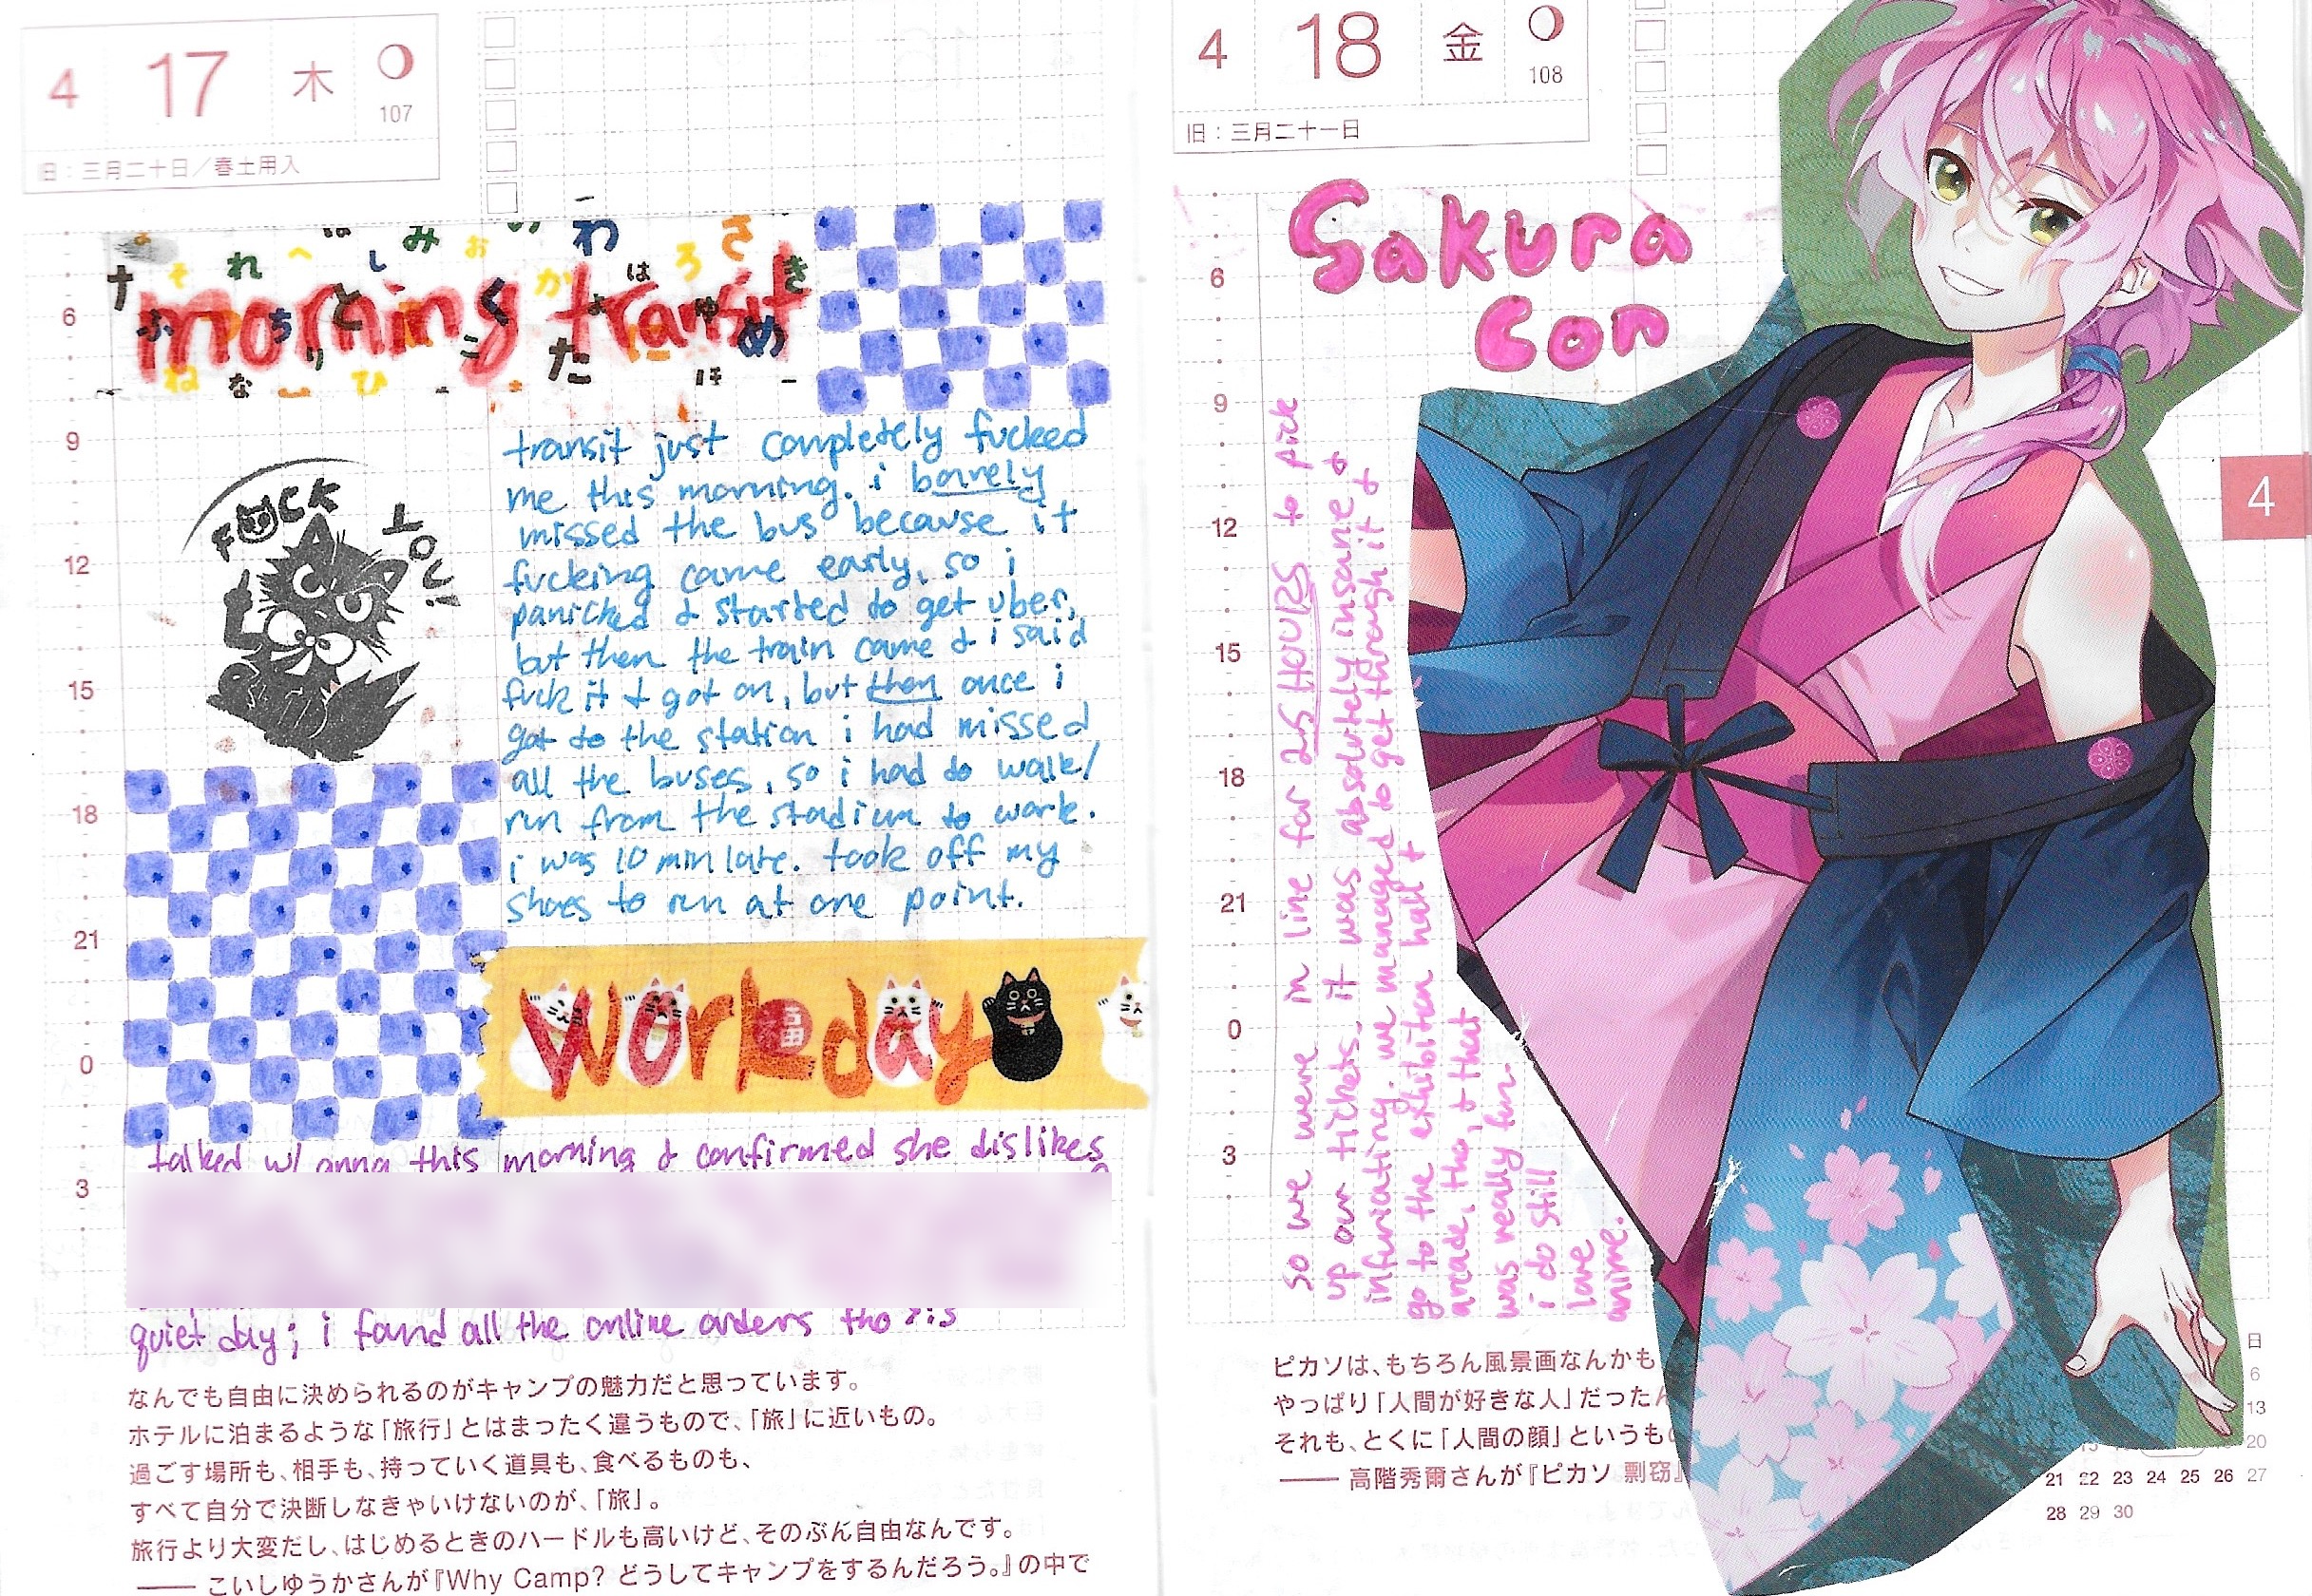 4 17 木
107
旧：三月二十日／春土用入
morning transit
6
9
12
15
18
21
0
3
F CK YOU!
transit just completely fucked
me this morning. i barely
missed the bus because it
fucking came early, so i
panicked & started to get uber,
but then the train came & i said
fuck it & got on, but then once i
got to the station i had missed
all the buses, so i had to walk/
run from the stadium to work.
i was 10 min late. took off my
shoes to run at one point.
work day
talked w/ anna this morning & confirmed she dislikes
quiet day; i found all the online orders tho
なんでも自由に決められるのがキャンプの魅力だと思っています。
ホテルに泊まるような「旅行」とはまったく違うもので、「旅」に近いもの。
過ごす場所も、相手も、持っていく道具も、食べるものも、
すべて自分で決断しなきゃいけないのが、「旅」。
旅行より大変だし、はじめるときのハードルも高いけど、そのぶん自由なんです。
—— こいしゆうかさんが『Why Camp? どうしてキャンプをするんだろう。』の中で
4 18 金
108
旧：三月二十一日
Sakura
Con
6
9
12
15
18
21
0
3
4
so we were in line for 2.5 HOURS to pick
up our tickets. it was absolutely insane &
infuriating. we managed to get through it &
go to the exhibition hall &
arcade, tho, & that
was really fun.
i do still
love
anime.
ピカソは、もちろん風景画なんかも
やっぱり「人間が好きな人」だったん
それも、とくに「人間の顔」というもの
—— 高階秀爾さんが『ピカソ 剽窃』
日
6
13
20
21 22 23 24 25 26 27
28 29 30